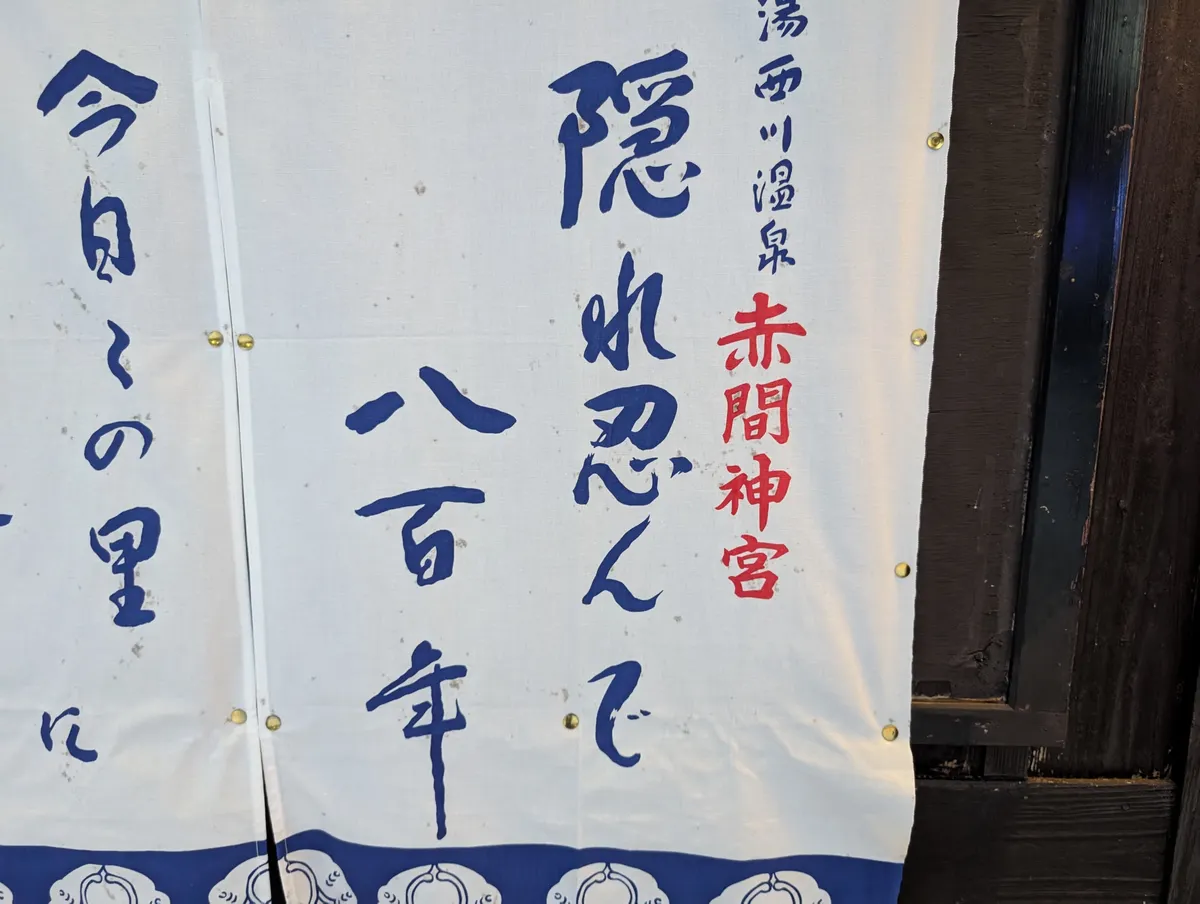 湯西川温泉 赤間神宮
隠れ忍んで
八百年
今日この里に